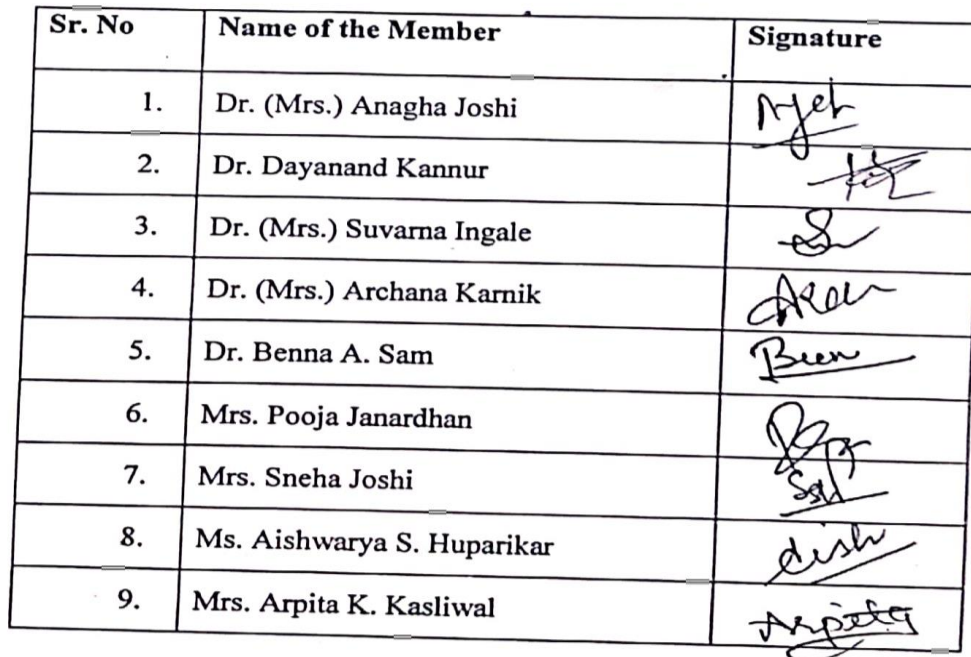 Sr. No Name of the Member Signature
1. Dr. (Mrs.) Anagha Joshi
2. Dr. Dayanand Kannur
3. Dr. (Mrs.) Suvarna Ingale
4. Dr. (Mrs.) Archana Karnik
5. Dr. Benna A. Sam
6. Mrs. Pooja Janardhan
7. Mrs. Sneha Joshi
8. Ms. Aishwarya S. Huparikar
9. Mrs. Arpita K. Kasliwal Arpita